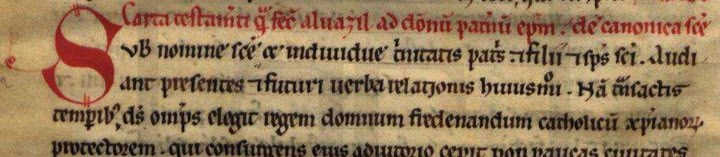 Carta testam̄ti q̄ fec̄ aluazil ad dōnū patnū ep̄m. de canonica sc̄e
SVB nomine sc̄e ⁊ indiuidue t̄nitatis pat̄s ⁊ filii ⁊ sp̄s sc̄i. Audi
ant presentes ⁊ futuri uerba relationis huiusm̊i. Nā t̄nsactis
temporib; d̄s omp̄s elegit regem domnum fredenandum catholicū xp̄ianoꝝ
protectorem. qui consurgens eius adiutorio cepit non paucas ciuitates